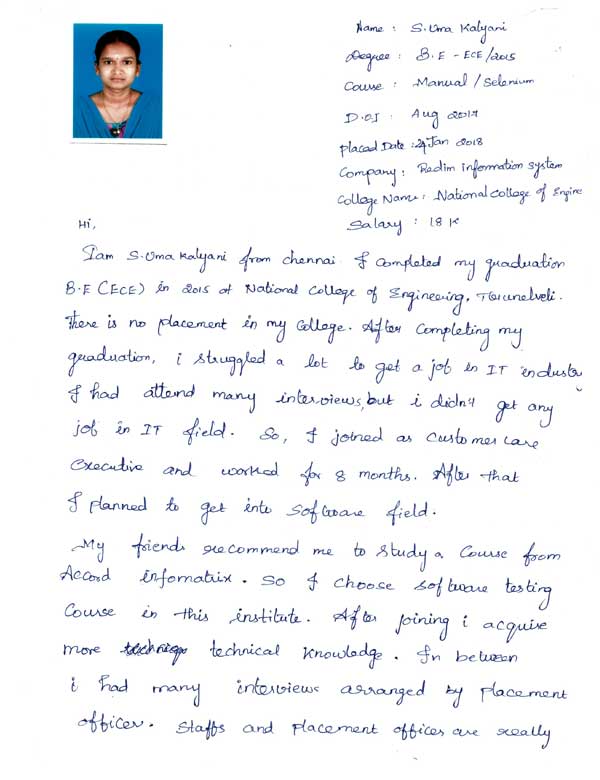 Name : S. Uma Kalyani
Degree : B.E - ECE/2015
Course : Manual / Selenium
D.O.J : Aug 2017
Placed Date : 24 Jan 2018
Company : Redim information system
College Name : National College of Engine
Salary : 18 K
Hi,
I am S. Uma Kalyani from chennai. I completed my graduation
B.E (ECE) in 2015 at National College of Engineering, Tirunelveli.
There is no placement in my College. After Completing my
graduation, i struggled a lot to get a job in IT industry
I had attend many interviews, but i didn't get any
job in IT field. So, I joined as Customer care
Executive and worked for 8 months. After that
I planned to get into Software field.
My friends recommend me to study a Course from
Accord infomatrix. So I choose software testing
Course in this institute. After joining i acquire
more technical knowledge. In between
i had many interviews arranged by placement
officer. Staffs and placement offices are really